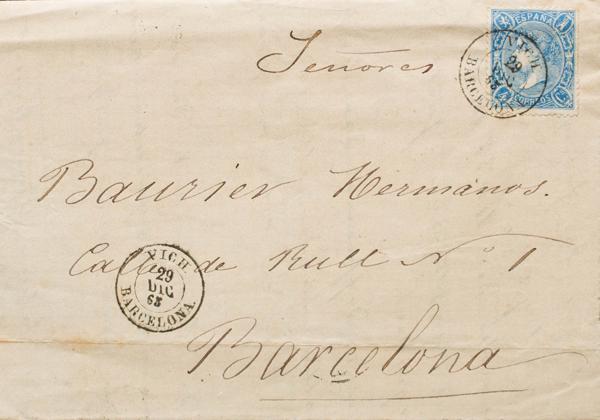 ESPAÑA
CORREOS
VICH
29
DIC
65
BARCELONA
Señores
Baurier Hermanos.
Calle de Rull Nº 1
Barcelona
VICH.
29
DIC
65
BARCELONA.